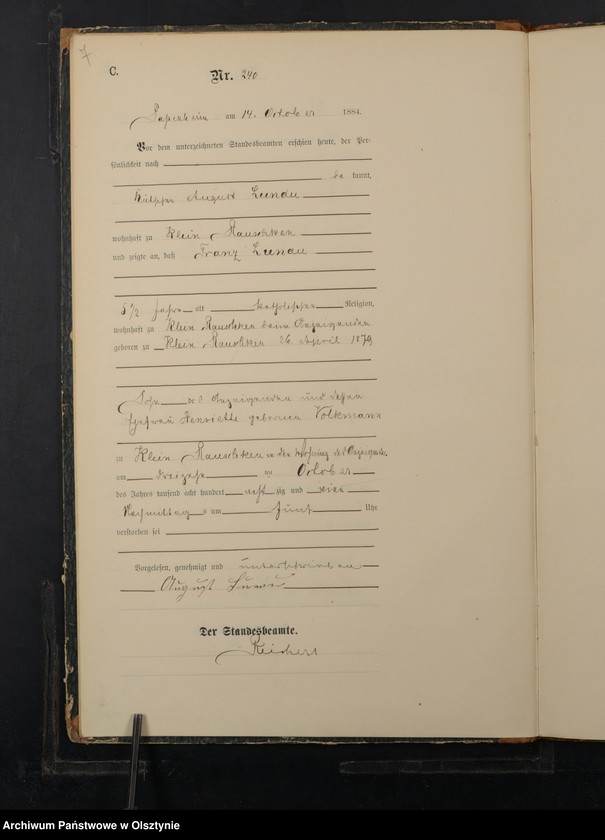 7
C.
Nr. 240
am 14. October 1884.
Vor dem unterzeichneten Standesbeamten erschien heute, der Per-
sönlichkeit nach
be kannt,
August Lunau
wohnhaft zu Klein Rauschken
und zeigte an, daß Franz Lunau
5 1/2 Jahre alt katholischer Religion,
wohnhaft zu Klein Rauschken beim Anzeigenden
geboren zu Klein Rauschken 26 April 1879
Sohn des Anzeigenden und dessen
Ehefrau Henriette geborenen Volkmann
zu Klein Rauschken in der Wohnung des Anzeigenden
am dreizehn ten October
des Jahres tausend acht hundert acht zig und vier
Nachmittag s um fünf Uhr
verstorben sei
Vorgelesen, genehmigt und unterschrieben
August Lunau
Der Standesbeamte.
Reichert
Archiwum Państwowe w Olsztynie